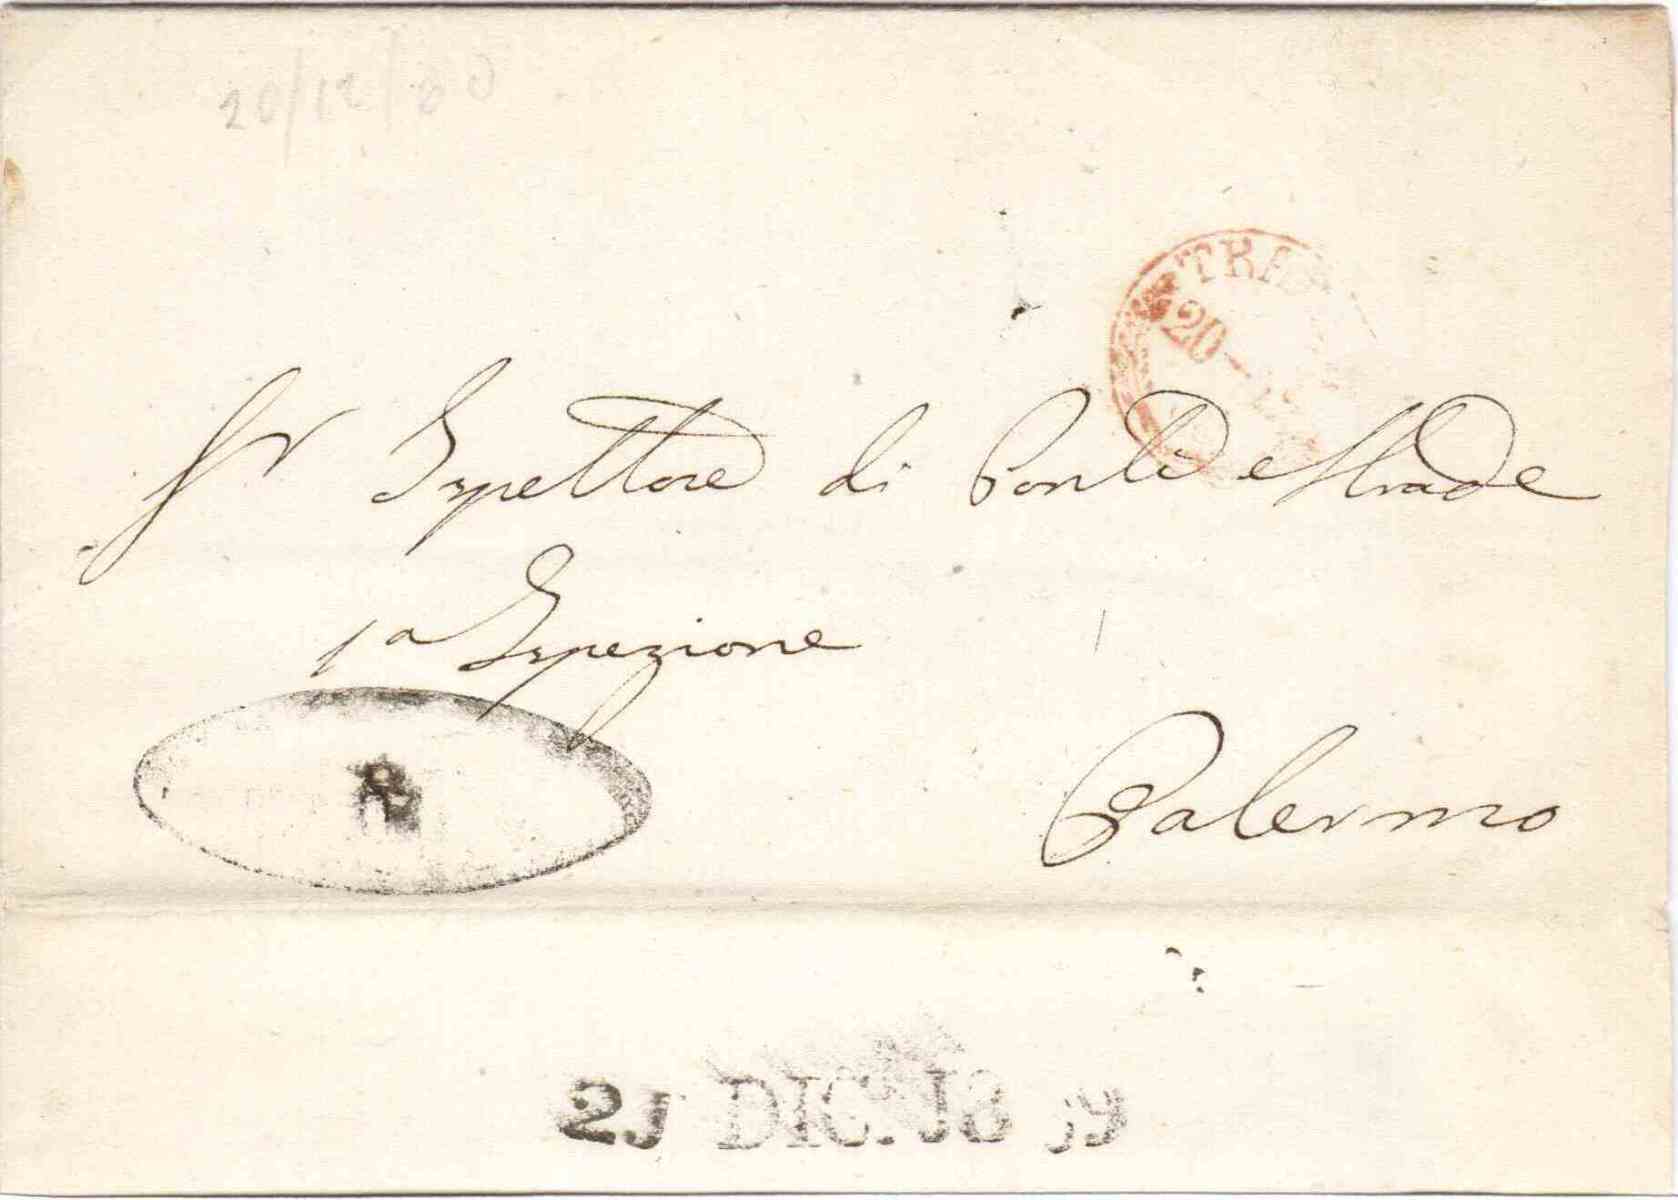 20/12/60
TRA
20
Sr Ispettore di Ponti e Strade
1a Ispezione
Palermo
21 DIC. 18 59